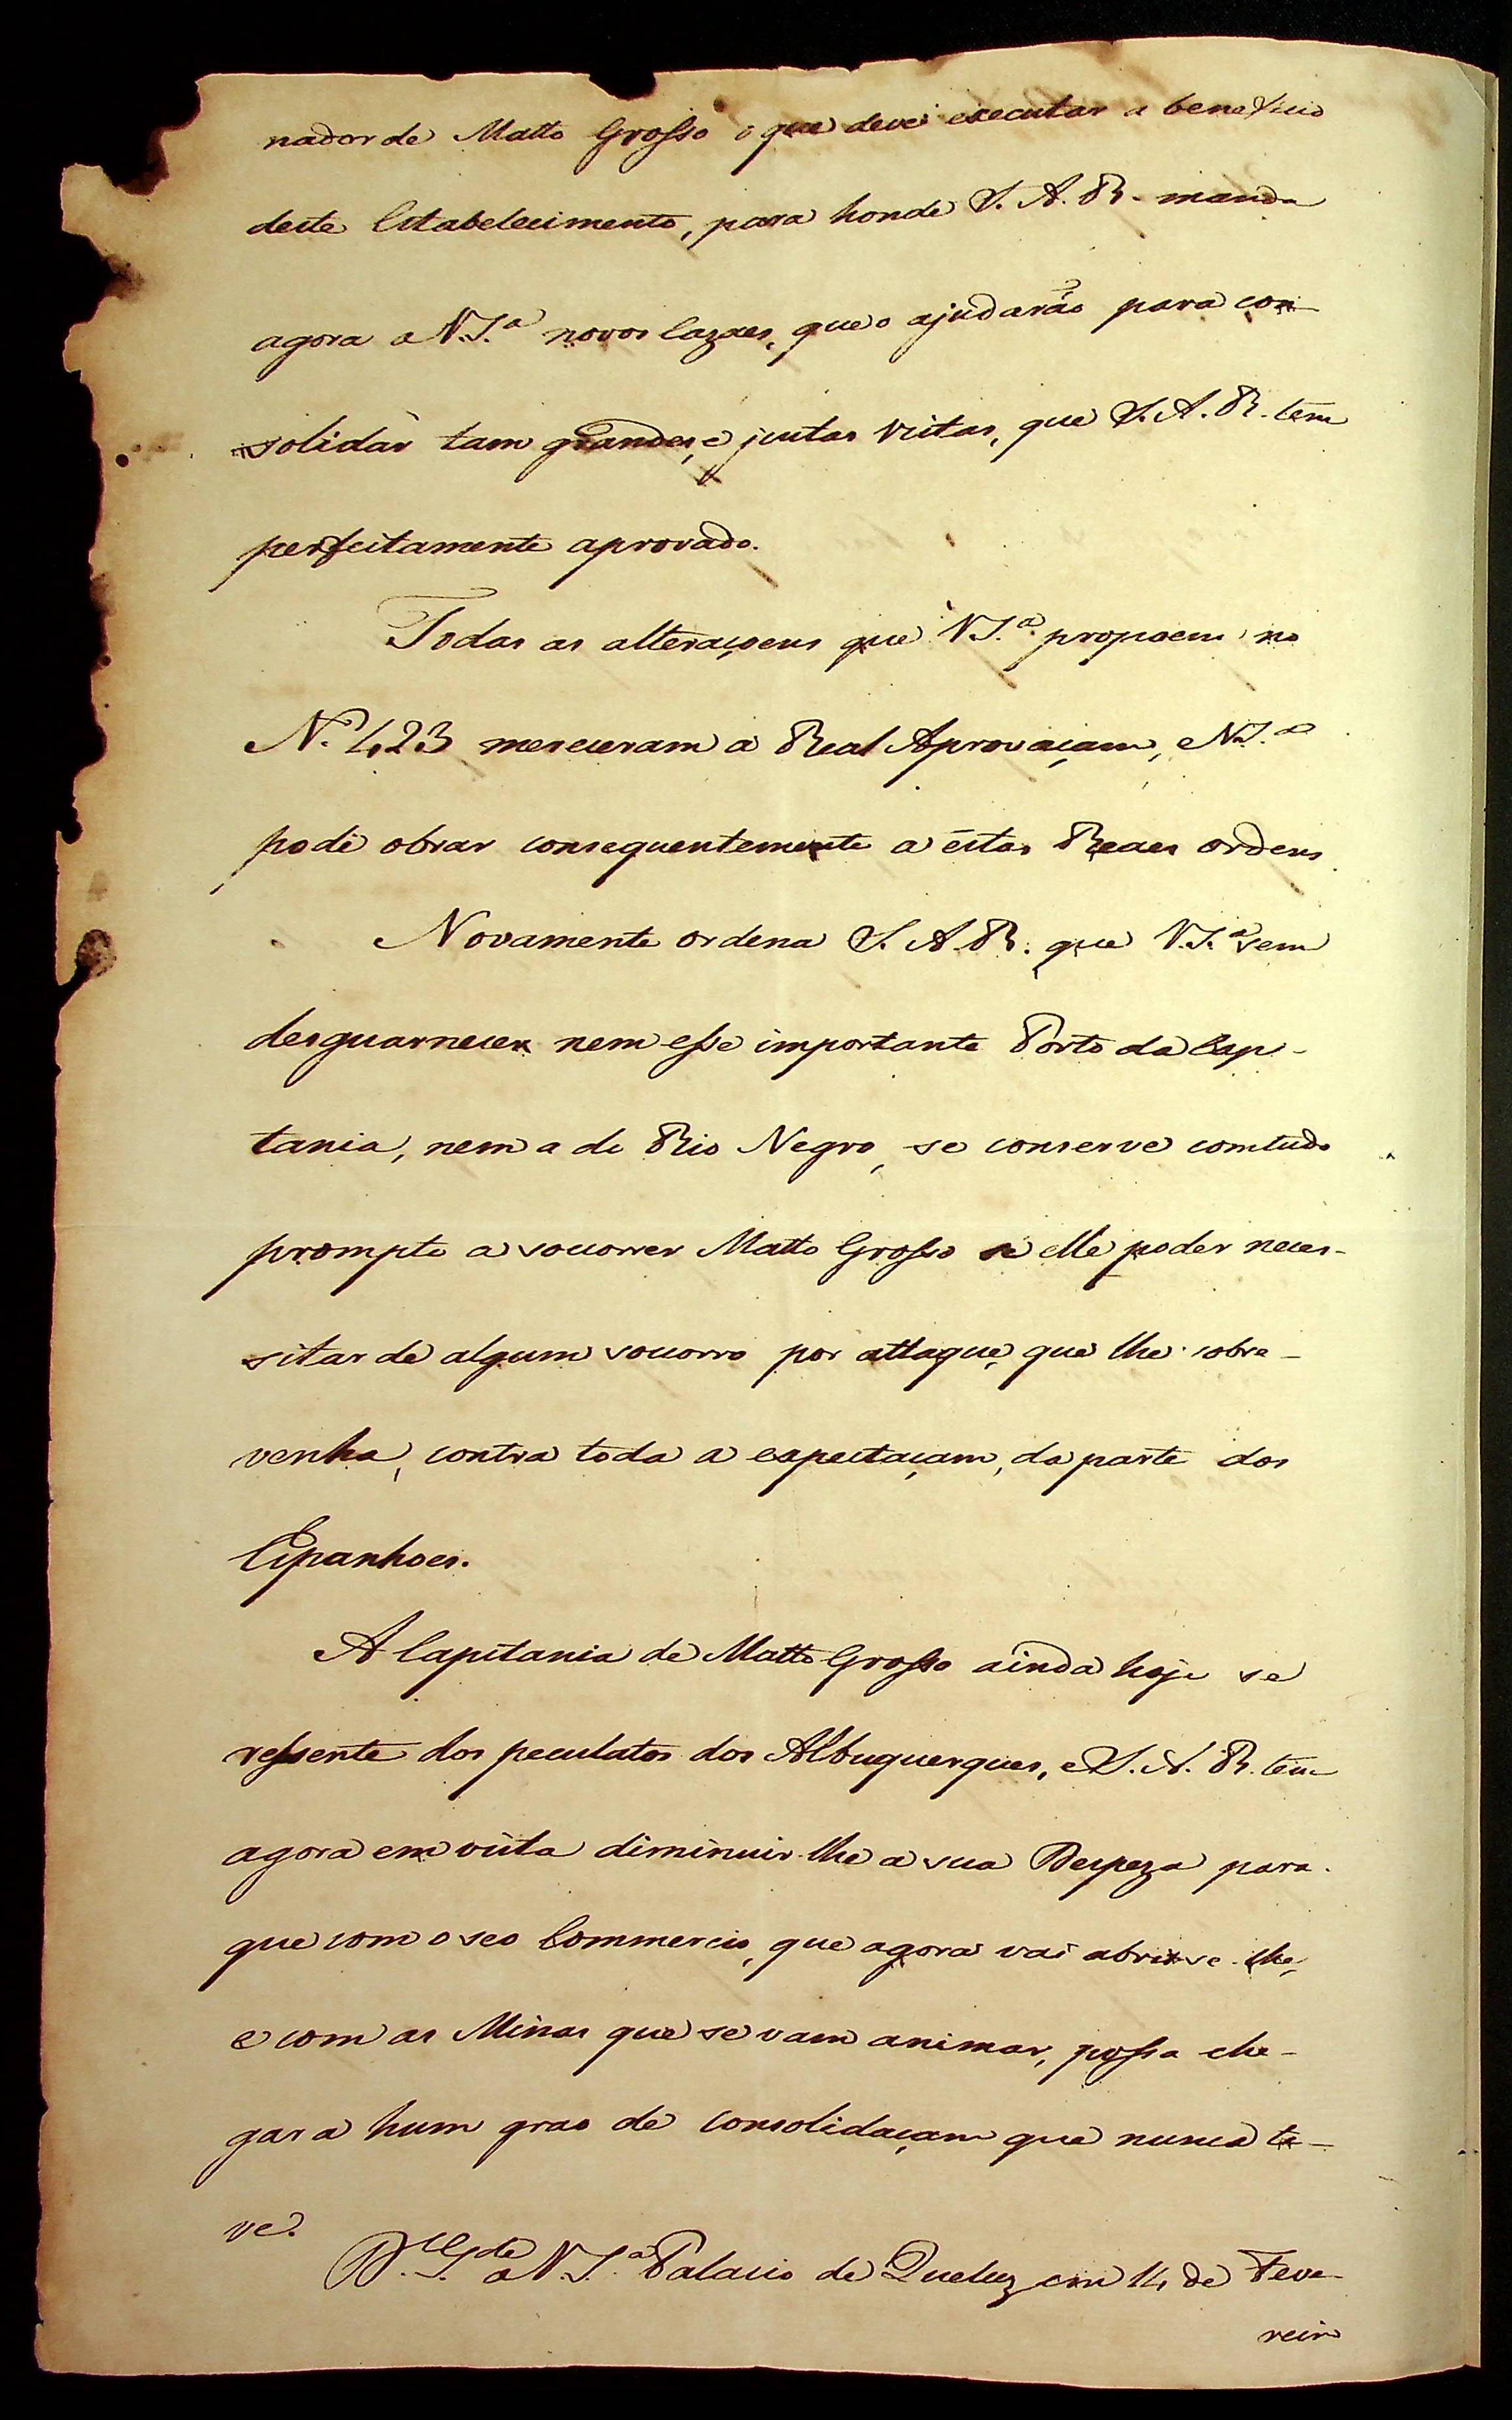 nador de Matto Grosso o que deve executar a beneficio
deste Estabelecimento, para honde S. A. R. manda
agora a V. S.ª novos Cazaes, que o ajudarão para con-
solidar tam grandes, e justas vistas, que S. A. R. tem
perfeitamente aprovado.
Todas as alteraçoens que V S.ª propoem no
N.º 423 mereceram a Real Aprovaçam, e V. S.ª
pode obrar consequentemente a éstas Reaes ordens.
Novamente ordena S. A. R. que V. S.ª sem
desguarnecer nem esse importante Porto da Capi-
tania, nem a do Rio Negro, se conserve comtudo
prompto a socorrer Matto Grosso se elle poder neces-
sitar de algum socorro por attaque, que lhe sobre-
venha, contra toda a expectaçam, da parte dos
Espanhoes.
A Capitania de Matto Grosso ainda hoje se
ressente dos peculatos dos Albuquerques, e S. A. R. tem
agora em vista diminuir-lhe a sua Despeza para
que com o seo Commercio, que agora vai abrir-se-lhe,
e com as Minas que se vam animar, possa che-
gar a hum grao de consolidaçam que nunca te-
ve.
D.s G.de a V. S.ª Palacio de Queluz em 14 de Feve-
reiro